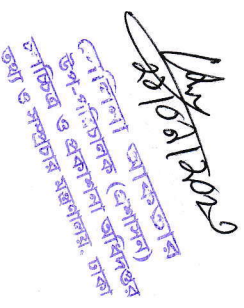 ২১/০৭/২০২
আকতার
উপ-পরিচালক (প্রশাসন)
চলচ্চিত্র ও প্রকাশনা অধিদপ্তর
তথ্য ও সম্প্রচার মন্ত্রণালয়, ঢাকা